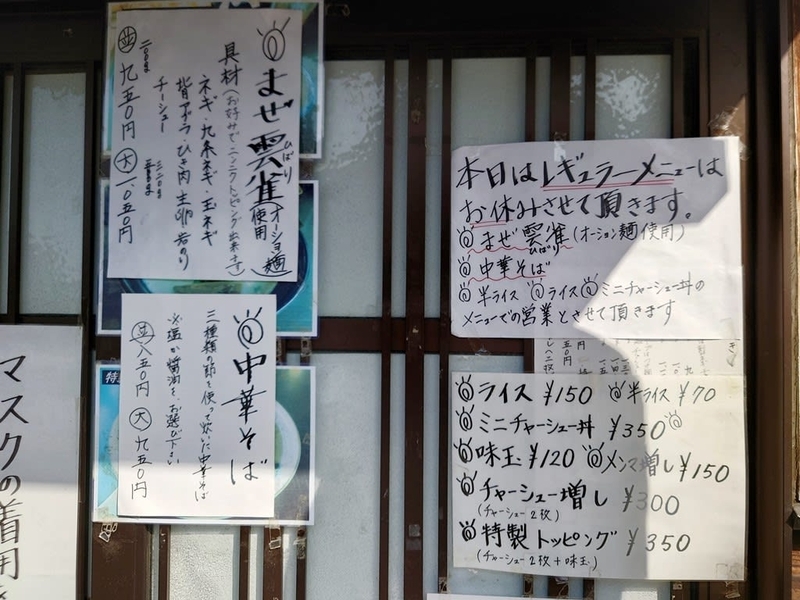 まぜ雲雀
ひばり
(オーション麺使用)
具材(お好みでニンニクトッピング出来ます)
ネギ・九条ネギ・玉ネギ
背アブラ・ひき肉・生卵・岩のり
チーシュー
並 九五〇円
大 一、〇五〇円
中華そば
三種類の節を使って炊いた中華そば
※塩か醤油を、お選び下さい
並 八五〇円 大 九五〇円
マスクの着用
本日はレギュラーメニューは
お休みさせて頂きます。
まぜ雲雀(オーション麺使用)
ひばり
中華そば
半ライス ライス ミニチャーシュー丼の
メニューでの営業とさせて頂きます
ライス ¥150 半ライス ¥70
ミニチャーシュー丼 ¥350
味玉 ¥120 メンマ増し ¥150
チャーシュー増し ¥300
(チャーシュー2枚)
特製トッピング ¥350
(チャーシュー2枚+味玉)